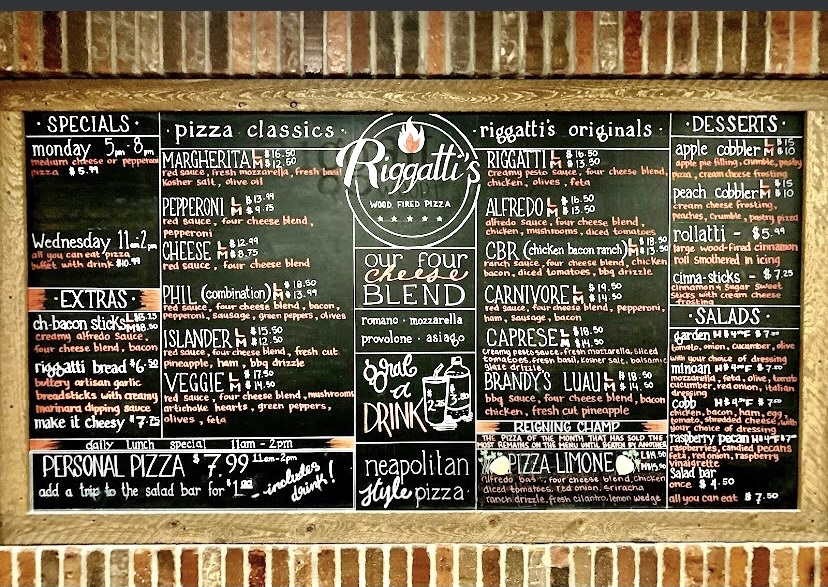 ·SPECIALS·
monday 5pm-8pm
medium cheese or pepperoni
pizza $5.99
Wednesday 11am-2pm
all you can eat pizza
buffet with drink $10.99
·EXTRAS·
ch-bacon sticks
creamy alfredo sauce,
four cheese blend, bacon
riggatti bread $6.50
buttery artisan garlic
breadsticks with creamy
marinara dipping sauce
make it cheesy $7.75
· pizza classics ·
MARGHERITA L $16.50
M $12.50
red sauce, fresh mozzarella, fresh basil
Kosher salt, olive oil
PEPPERONI L $13.99
M $9.75
red sauce, four cheese blend,
pepperoni
CHEESE L $12.99
M $8.75
red sauce, four cheese blend
PHIL (combination) L $18.50
M $13.99
red sauce, four cheese blend, bacon,
pepperoni, sausage, green peppers, olives
ISLANDER L $15.50
M $12.50
red sauce, four cheese blend, fresh cut
pineapple, ham, bbq drizzle
VEGGIE L $17.50
M $14.50
red sauce, four cheese blend, mushrooms
artichoke hearts, green peppers,
olives, feta
daily lunch special 11am-2pm
PERSONAL PIZZA $7.99 11am-2pm
add a trip to the salad bar for
includes
drink!
Riggatti's
WOOD FIRED PIZZA
our four
cheese
BLEND
romano · mozzarella
provolone · asiago
grab
a
DRINK
neapolitan
style pizza
·riggatti's originals·
RIGGATTI L $16.50
M $13.50
creamy pesto sauce, four cheese blend,
chicken, olives, feta
ALFREDO L $16.50
M $13.50
alfredo sauce, four cheese blend,
chicken, mushrooms, diced tomatoes
CBR (chicken bacon ranch) L $18.50
M $13.50
ranch sauce, four cheese blend, chicken
bacon, diced tomatoes, bbq drizzle
CARNIVORE L $19.50
M $14.50
red sauce, four cheese blend, pepperoni,
ham, sausage, bacon
CAPRESE L $18.50
M $14.50
creamy pesto sauce, fresh mozzarella, sliced
tomatoes, fresh basil, kosher salt, balsamic
glaze drizzle
BRANDY'S LUAU L $18.50
M $14.50
bbq sauce, four cheese blend, bacon
chicken, fresh cut pineapple
REIGNING CHAMP
THE PIZZA OF THE MONTH THAT HAS SOLD THE
MOST REMAINS ON THE MENU UNTIL BEATEN BY ANOTHER
PIZZA LIMONE
alfredo base, four cheese blend, chicken
diced tomatoes, red onion, sriracha
ranch drizzle, fresh cilantro, lemon wedge
·DESSERTS·
apple cobbler L $15
M $10
apple pie filling, crumble, pastry
pizza, cream cheese frosting
peach cobbler L $15
M $10
cream cheese frosting,
peaches, crumble, pastry pizza
rollatti - $5.99
large wood-fired cinnamon
roll smothered in icing
cinna-sticks - $7.25
cinnamon & sugar sweet
sticks with cream cheese
frosting
·SALADS·
garden
tomato, onion, cucumber, olive
with your choice of dressing
minoan
mozzarella, feta, olive, tomato
cucumber, red onion, italian
dressing
cobb
chicken, bacon, ham, egg,
tomato, shredded cheese, with
your choice of dressing
raspberry pecan
raspberries, candied pecans
feta, red onion, raspberry
vinaigrette
salad bar
once $4.50
all you can eat $7.50